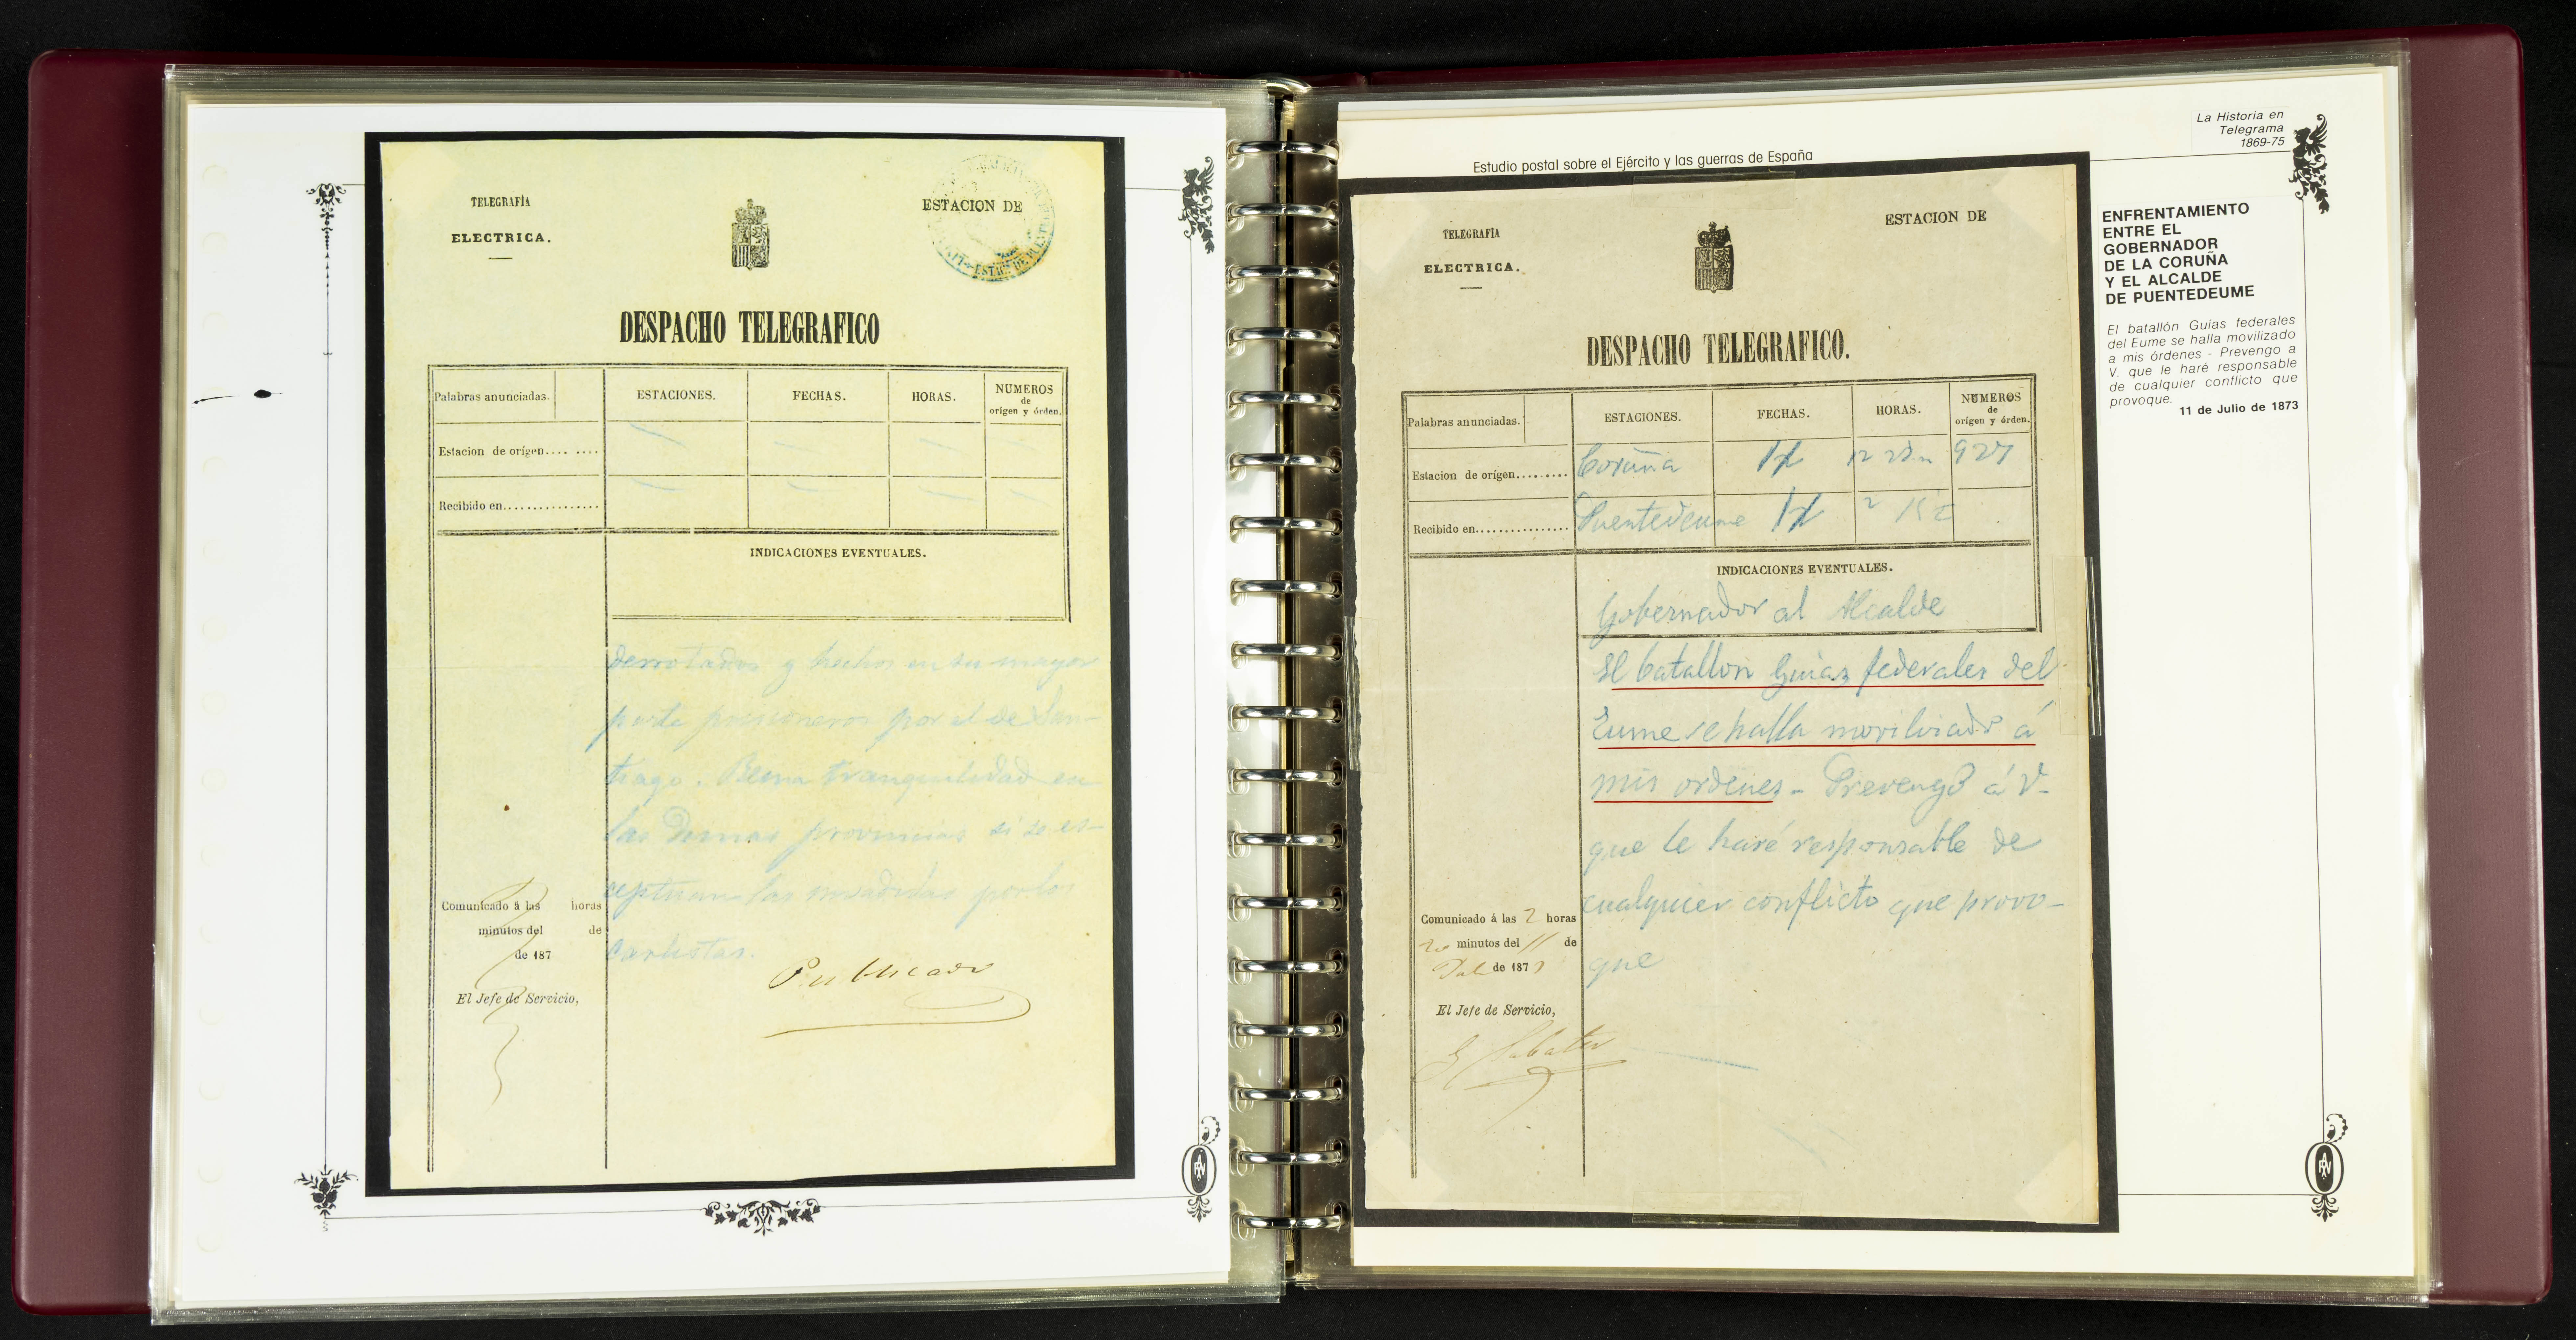 TELEGRAFÍA
ELECTRICA.
ESTACION DE
DESPACHO TELEGRAFICO
Palabras anunciadas.
ESTACIONES.
FECHAS.
HORAS.
NUMEROS
de
orígen y órden.
Estacion de orígen.... ....
Recibido en................
INDICACIONES EVENTUALES.
derrotados y hechos en su mayor
parte prisioneros por el de San-
tiago. Reina tranquilidad en
las demas provincias si se es-
ceptuan las invadidas por los
carlistas.
Publicado
Comunicado á las horas
minutos del de
de 187
El Jefe de Servicio,
La Historia en
Telegrama
1869-75
Estudio postal sobre el Ejército y las guerras de España
TELEGRAFÍA
ELECTRICA.
ESTACION DE
DESPACHO TELEGRAFICO.
Palabras anunciadas.
ESTACIONES.
FECHAS.
HORAS.
NUMEROS
de
orígen y órden.
Estacion de orígen......... Coruña 11 12 927
Recibido en................ Puentedeume 11 2 15
INDICACIONES EVENTUALES.
Gobernador al Alcalde
El batallon Guias federales del
Eume se halla movilizado á
mis ordenes - Prevengo á V.
que le haré responsable de
cualquier conflicto que provo-
que
Comunicado á las 2 horas
20 minutos del 11 de
Jul de 1873
El Jefe de Servicio,
Sabater
ENFRENTAMIENTO
ENTRE EL
GOBERNADOR
DE LA CORUÑA
Y EL ALCALDE
DE PUENTEDEUME
El batallón Guías federales
del Eume se halla movilizado
a mis órdenes - Prevengo a
V. que le haré responsable
de cualquier conflicto que
provoque.
11 de Julio de 1873